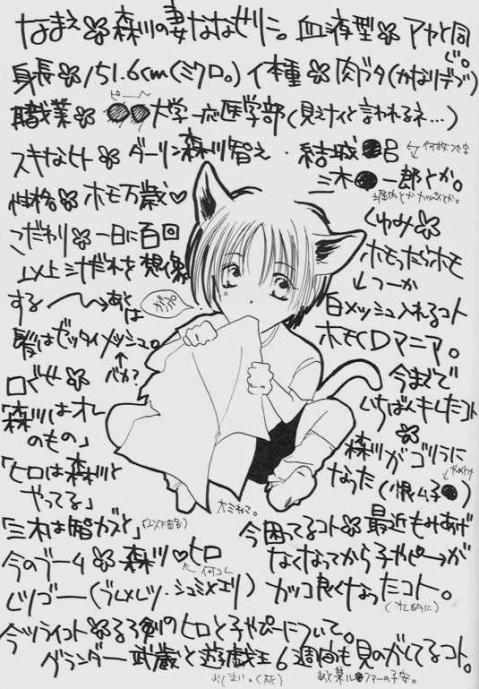 なまえ✽森川の妻ななぜりに。血液型✽アヤと同じ。
身長✽151.6cm(ミクロ。)イ種✽肉ブタ(かなりデブ)
職業✽●●大学一応医学部(見えナイと言われるネ…)
スキなヒト✽ダーリン森川智え・結城●呂
三木●一郎とか。
性格✽ホモ万歳♥
こだわり✽一日に百回
以上三汁だれを想像
する〜〜→あとは
髪はゼッタイメッシュ。
↑バカ?
しゅみ✽
ホモったらホモ
↓つーか
白メッシュ入れるコト
ホモCDマニア。
がぷ
口ぐせ✽
「森川はオレ
のもの」
「ヒロは森川と
やってる」
「三木は智カズと」(以下自主)
今まで
いちばんキレたコト
✽
森川がゴリラに
なった(恨ム子●)
大ミネコ。
今のブーム✽森川♥ヒロ
←何コレ
今困ってるコト✽最近もみあげ
なくなってから子やぴーが
ガッコ良くなったコト。
(オレ的に)
今ツライコト✽るろ剣のヒロと子やぴーについて。
グランダー武蔵と遊戯王6週間も見のがしてるコト。